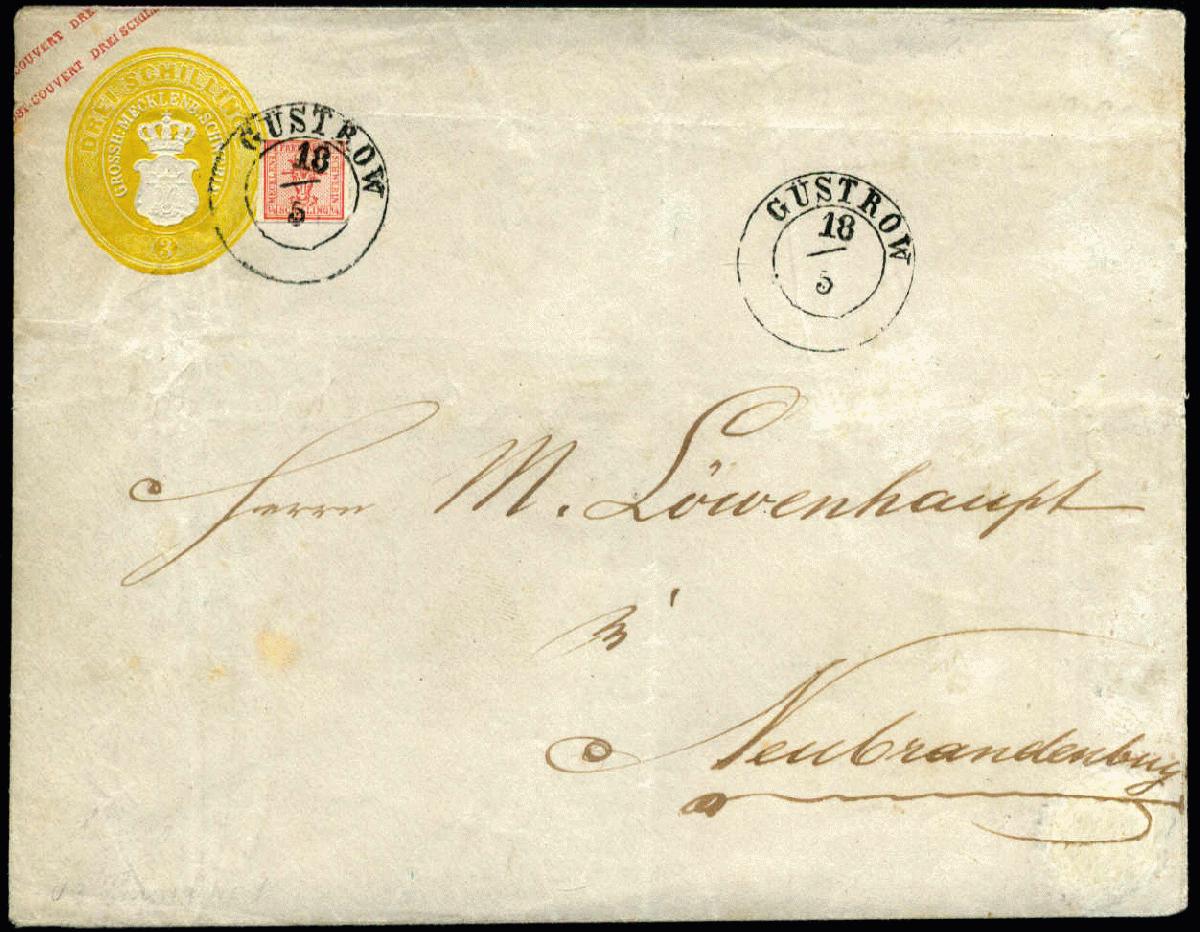 COUVERT DREI
POST-COUVERT DREI SCHILL
DREI SCHILLING
GROSSH. MECKLENB. SCHWERIN
3
GÜSTROW
18
5
GÜSTROW
18
5
Herrn M. Löwenhaupt
Neubrandenburg